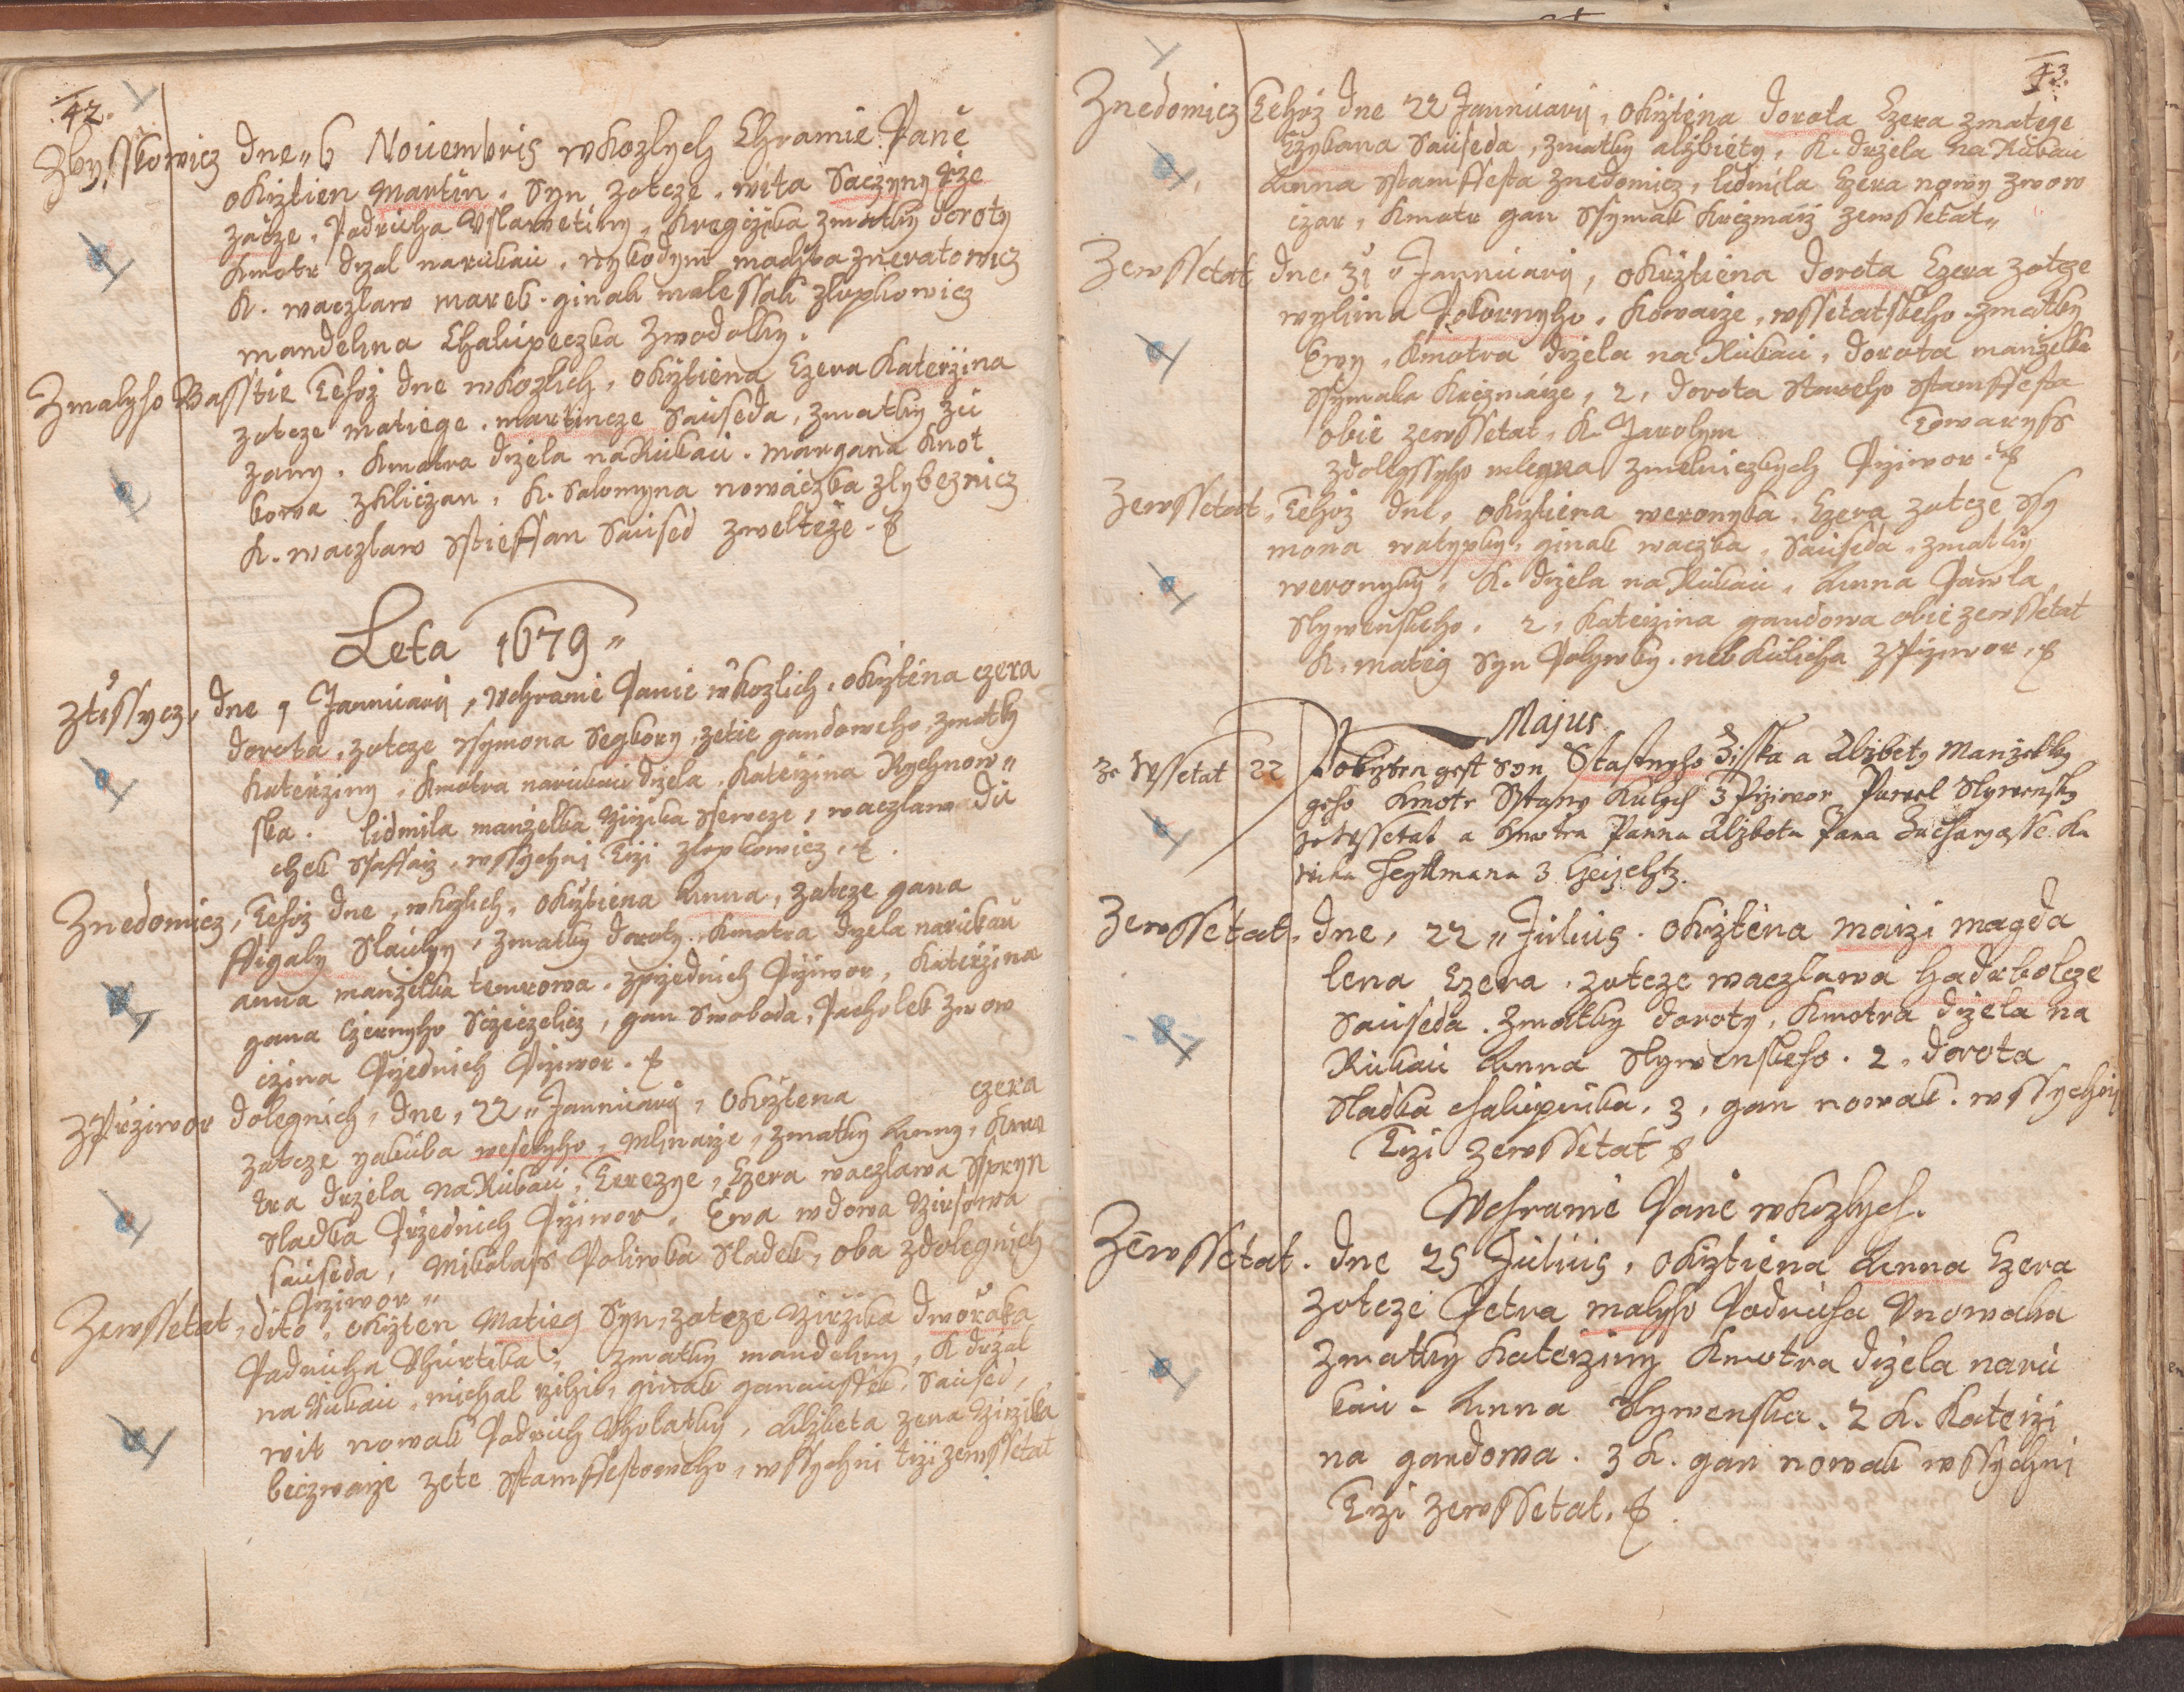 42.
Zbysskowicz dne 6 Nouembris wkozlych Chramie Panĕ
okrztien Martin. Syn zotcze. wita Saczyny
zatze, Podruha Vslawetiny, kragiczka zmatky doroty
kmotr drzal narukau, nykodym madlka zneratowicz
K. waczlaw mareb. ginak malessak zlopkowicz
mandelina Chalupeczka zwodolky.
Zmalyho Basstie Tehoz dne wkozlich, okrztiena Czera Katerzina
zotcze matiege. martincze Sauseda, zmatky zu
zany. Kmotra drzela naRukau. margana Knot
kowa zkliczan, K. Salomyna nowaczka zlybeznicz
K. waczlaw sstieffan Saused zwelteze.
Leta 1679
ztissycz, dne 9 Jannuarij, wchramie Panie wkozlich. okrztena czera
dorota, zotcze ssymona Segkory, zetie gandoweho, zmatky
Katerziny, Kmotra narukau drzela. Katerzina Rychnow
ska. lidmila manzelka Girzika ssewcze, waczlaw du
chek ssaffarz, wssychni Trzi zlopkowicz.
Znedomicz, Tehoz dne, wkozlich, okrztiena Anna, zotcze gana
ffigaly Slauky, zmatky doroty. Kmotra drzela narukau
anna manzelka temrowa. zprzednich Prziwor, Katerzina
gana Czernyho Sczeczelicz, gan Swoboda, Pacholek zwow
czina Przednich Prziwor.
ZPrziwor dolegnich, dne, 22 Jannuarij, okrztena czera
zotcze yakuba weselyho, Mlynarze, zmatky Anny, kmo
tra drzela naRukau, Terezye, Czera waczlawa Spryn
Sladka Przednich Prziwor. Ewa wdowa Girsowa
Sauseda, Mikolass Poliwka Sladek, oba zdolegnich
Prziwor
Zewssetat, dito, okrzten Matieg Syn, zotcze Girzika dworzaka
Podruha Vhurtika, zmatky mandeliny, K drzal
naRukau, michal rzihil, ginak ganaussek, Saused,
wit nowak Podruh Vholatky, Alzbeta zena Girzika
beczwarze zete sstamffestoweho, wssychni trzi zewssetat
43.
Znedomicz Tehoz dne 22 Jannuarij, okrztena dorota Czera zmatege
Czykana Sauseda, zmatky alzbiety, K. drzela naRukau
Anna sstamffesta znedomicz, lidmila Czera nowy zwow
czar, kmotr gan Ssymak krczmarz zewssetat
Zewssetat dne. 31 Jannuarij, okrztiena dorota Czera zotcze
wylima Pokornyho, kowarze, wssetatskeho zmatky
Ewy, kmotra drzela naRukau, dorota manzelka
Ssymaka krczmarze, 2, dorota Stareho sstamffesta
obie zewssetat, K. Jarolym Towaryss
zdolegssyho mlegna zmelniczkych Prziwor.
Zewssetat, Tehoz dne, okrztiena weronyka, Czera zotcze ssy
mona watypky, ginak waczka, Sauseda, zmatky
weronyky, K. drzela naRukau, Anna Pawla
Slywenskeho. 2, Katerzina gandowa obie zewssetat
K. mateg Syn Polywky. neb Kulicha zPrziwor.
Majus
Ze Wssetat 22 Pokrzten gest Syn Stastnyho Zisska a Alzbety Manzelky
geho kmotr Sstiany Kulych z Prziwor Pawel Slywensky
ze Wssetat a kmotra Panna Alzbeta Pana Zacharyasse
Heglmana z
Zewssetat, dne, 22 Julius. okrztena marzi magda
lena Czera, zotcze waczlawa hadrbolcze
Sauseda. zmatky doroty, kmotra drzela na
Rukau Anna Slywenskeho. 2, dorota
Sladka chalupnika, 3, gan nowak. wssychnij
Trzi zewssetat
Wchramie Panie wkozlych.
Zewssetat. dne 25 Julius, okrztiena Anna Czera
zotcze Petra malyho Podruha Vnowaka
zmatky Katerziny Kmotra drzela naru
kau. Anna Slywenska. 2 K. Katerzi
na gandowa. 3 K. gan nowak wssychni
Trzi zewssetat.